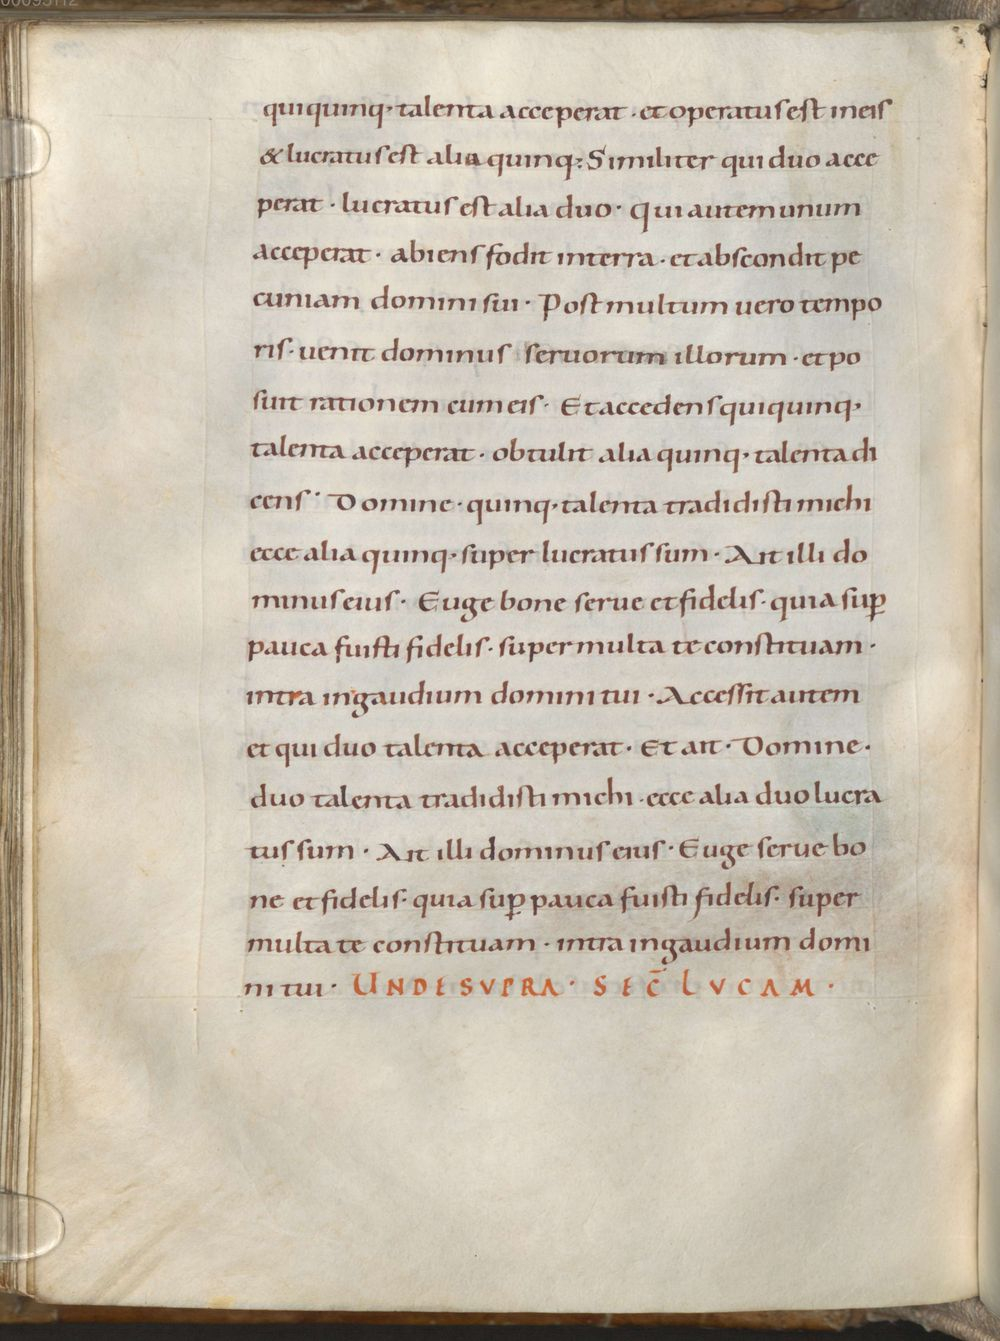 qui quinq· talenta acceperat · et operatus est in eis
& lucratus est alia quinq; Similiter qui duo acce
perat · lucratus est alia duo · qui autem unum
acceperat · abiens fodit in terra · et abscondit pe
cuniam domini sui · Post multum vero tempo
ris · venit dominus servorum illorum · et po
suit rationem cum eis · Et accedens qui quinq·
talenta acceperat · obtulit alia quinq· talenta di
cens · Domine · quinq· talenta tradidisti michi
ecce alia quinq· super lucratus sum · Ait illi do
minus eius · Euge bone serve et fidelis · quia sup̲
pauca fuisti fidelis · super multa te constituam ·
intra in gaudium domini tui · Accessit autem
et qui duo talenta acceperat · Et ait · Domine ·
duo talenta tradidisti michi · ecce alia duo lucra
tus sum · Ait illi dominus eius · Euge serve bo
ne et fidelis · quia sup̲ pauca fuisti fidelis · super
multa te constituam · intra in gaudium domi
ni tui · UNDE SVPRA · SEC̄ LVCAM ·